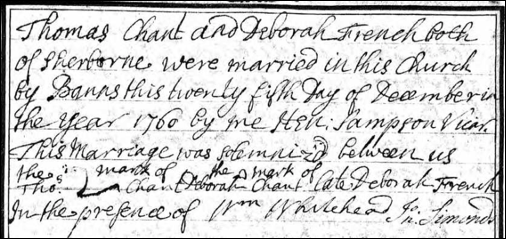 Thomas Chant and Deborah French both
of Sherborne were married in this Church
by Banns this twenty fifth Day of December in
the Year 1760 by me Hen: Sampson Vicar
This Marriage was solemniz'd between us
the mark of the mark of
Thos Chant Deborah Chant late Deborah French
In the presence of Wm Whitehead Jn: Simonds